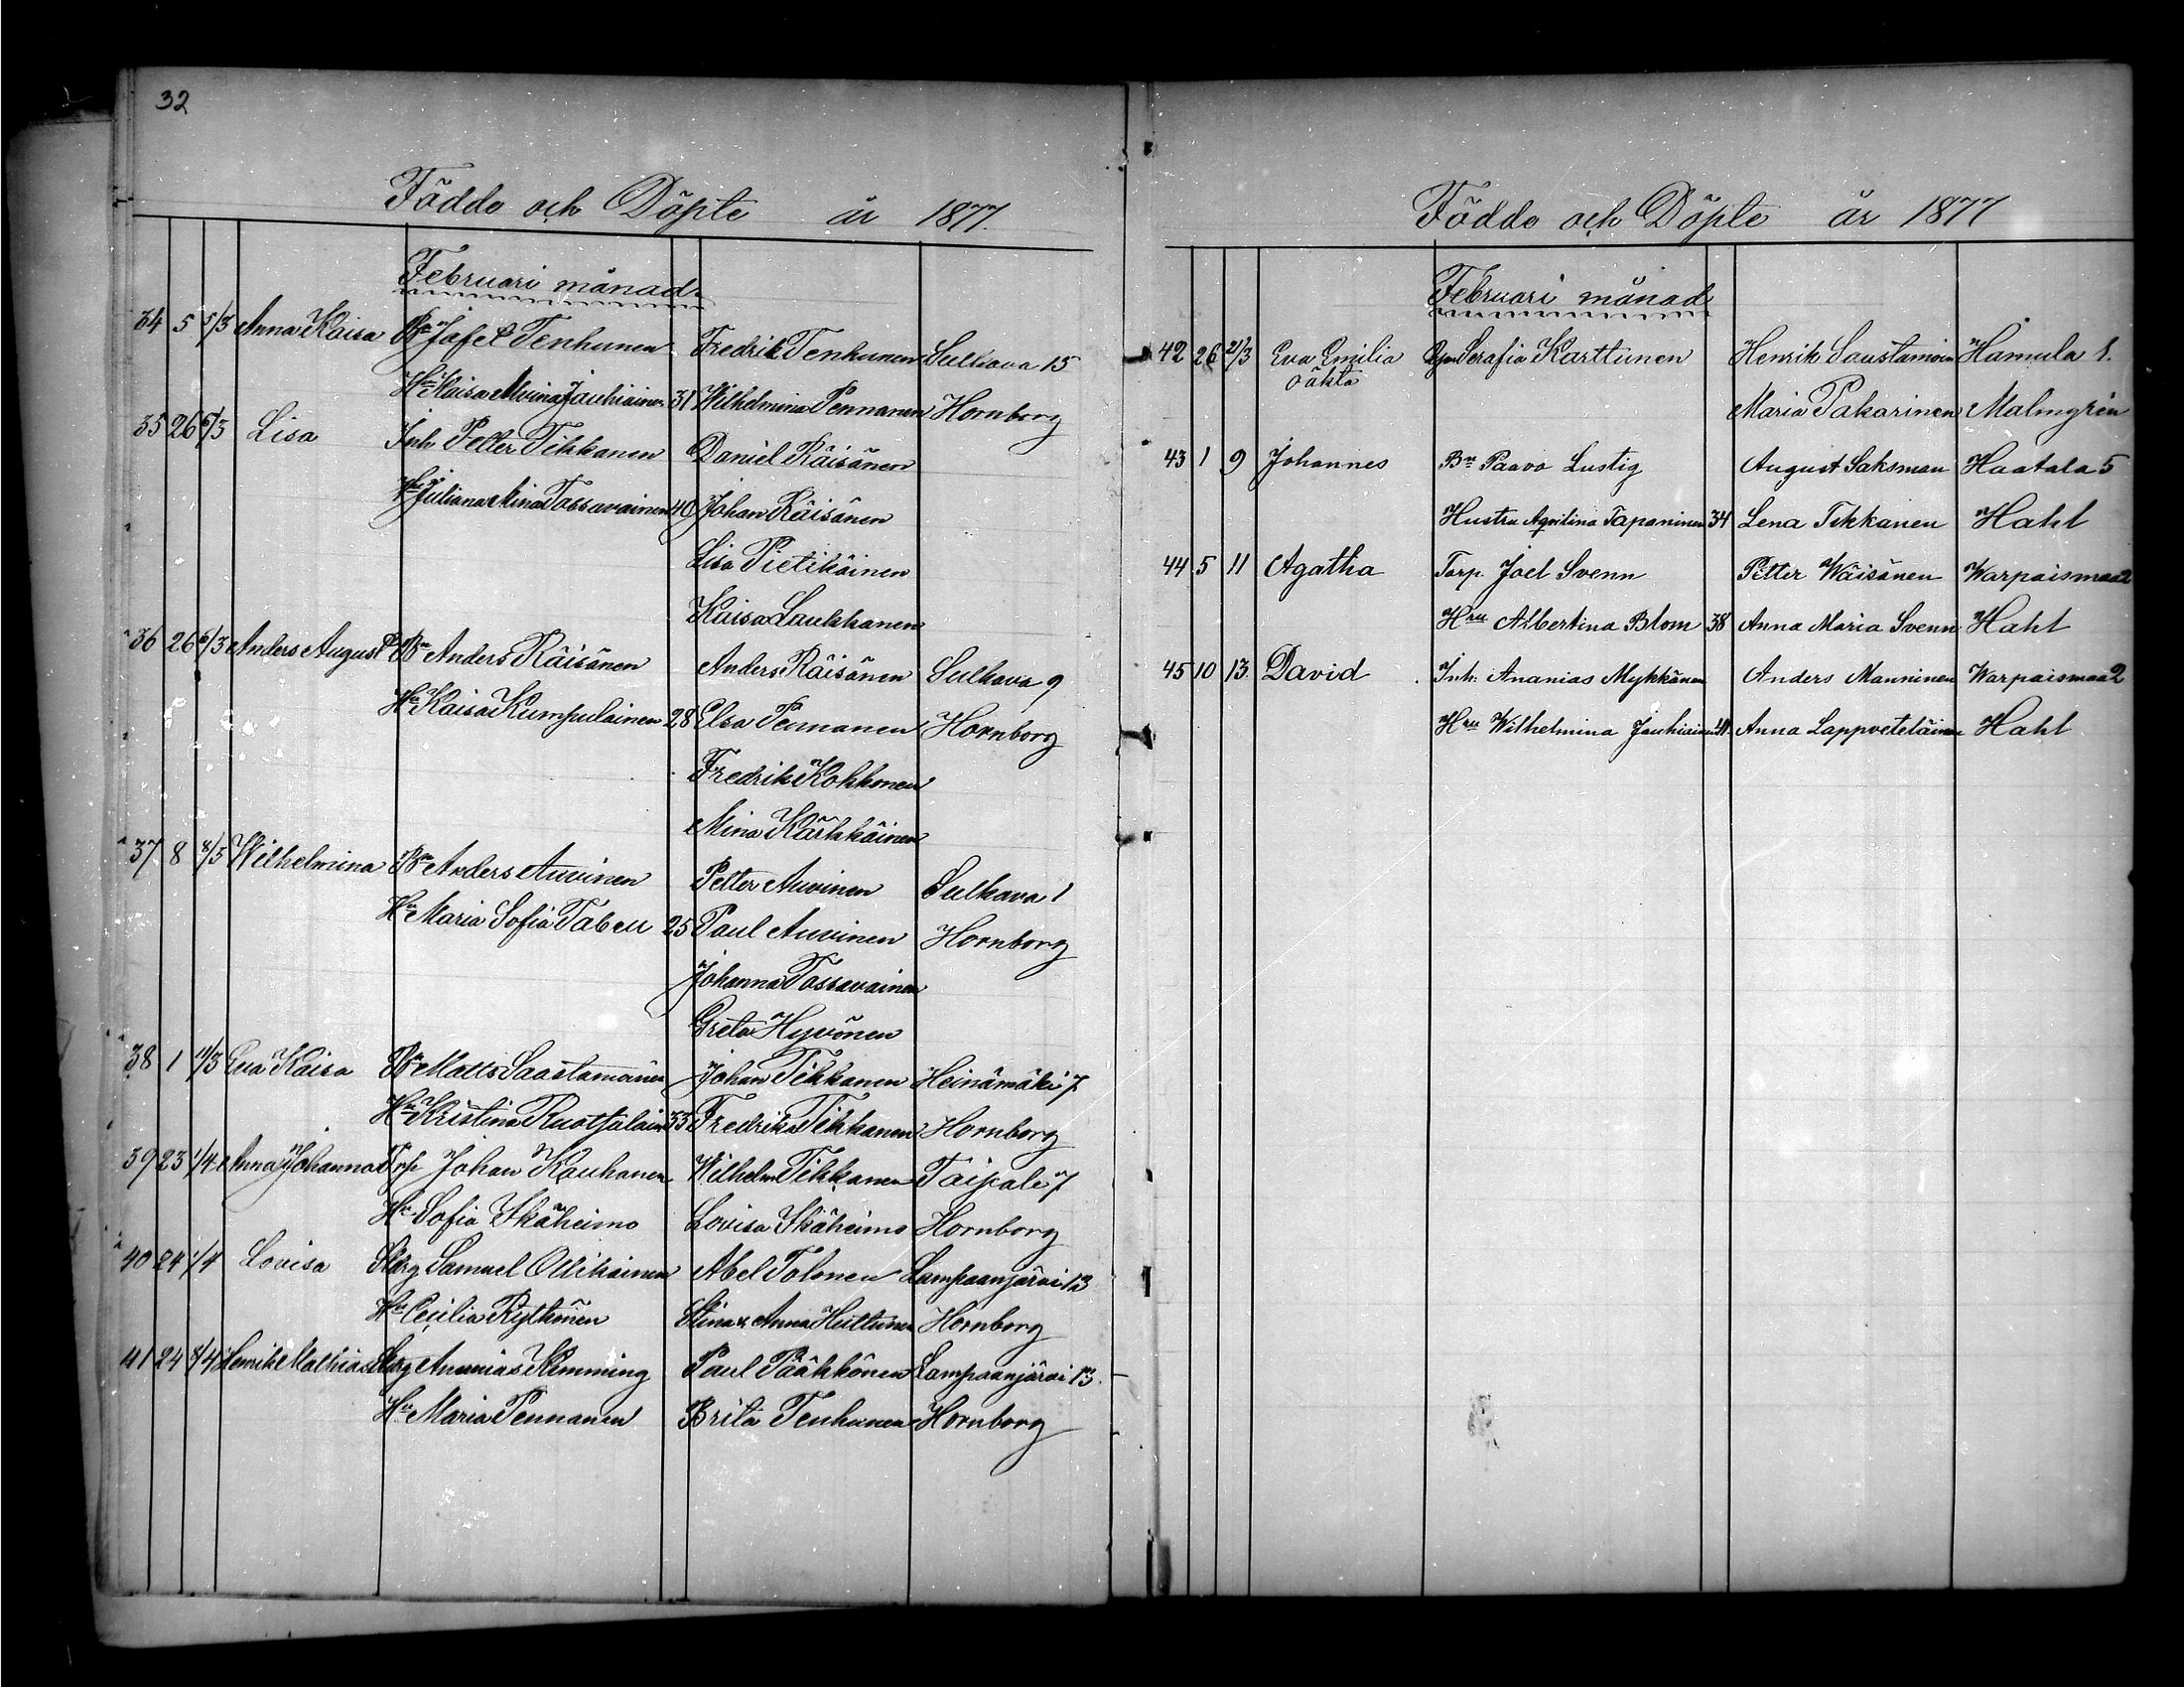 32
Födde och Döpte år 1877.
Februari månad.
34 5 5/3 Anna Kaisa Bn Jafet Tenhunen Fredrik Tenhunen Sulkava 15
Hu Kaisa Alvina Jauhiainen 31 Wilhelmina Pennanen Hornborg
35 26 6/3 Lisa Inh Petter Tikkanen Daniel Räisänen
Hu Juliana Mina Tossavainen 40 Johan Räisänen
Lisa Pietikäinen
Kaisa Laukkanen
36 26 6/3 Anders August Bn Anders Räisänen Anders Räisänen Sulkava 9
Hu Kaisa Kumpulainen 28 Elsa Pennanen Hornborg
Fredrik Kokkonen
Mina Kärkkäinen
37 8 8/5 Wilhelmina Bn Anders Auvinen Petter Auvinen Sulkava 1
Hu Maria Sofia Tabell 25 Paul Auvinen Hornborg
Johanna Tossavainen
Greta Hyvönen
38 1 11/3 Eva Kaisa Bn Matts Saastamoinen Johan Tikkanen Heinämäki 7
Hu Kristina Ruotsalain 33 Fredrika Tikkanen Hornborg
39 23 1/4 Anna Johanna Trp Johan Kauhanen Wilhelm Tikkanen Taipale 7
Hu Sofia Ikäheimo Lovisa Ikäheimo Hornborg
40 24 1/4 Lovisa Samuel Ollikainen Abel Tolonen Lampaanjärvi 13
Hu Cecilia Rytkönen Stina & Anna Huttunen Hornborg
41 24 8/4 Henrik Mathias Ananias Flemming Paul Pääkkönen Lampaanjärvi 13.
Hu Maria Pennanen Brita Tenhunen Hornborg
Födde och Döpte år 1877
Februari månad
42 26 21/3 Eva Emilia Serafia Karttunen Henrik Saastamoin Hamula 1.
oäkta Maria Pakarinen Malmgrén
43 1 9 Johannes Bn Paavo Lustig August Saksman Haatala 5
Hustru Aqvilina Tapaninen 34 Lena Tikkanen Hahl
44 5 11 Agatha Torp. Joel Svenn Petter Wäisänen Warpaismaa 2
Hru Albertina Blom 38 Anna Maria Svenn Hahl
45 10 13. David Inh. Ananias Mykkänen Anders Manninen Warpaismaa 2
Hru Wilhelmina Jauhiainen Anna Lappveteläinen Hahl